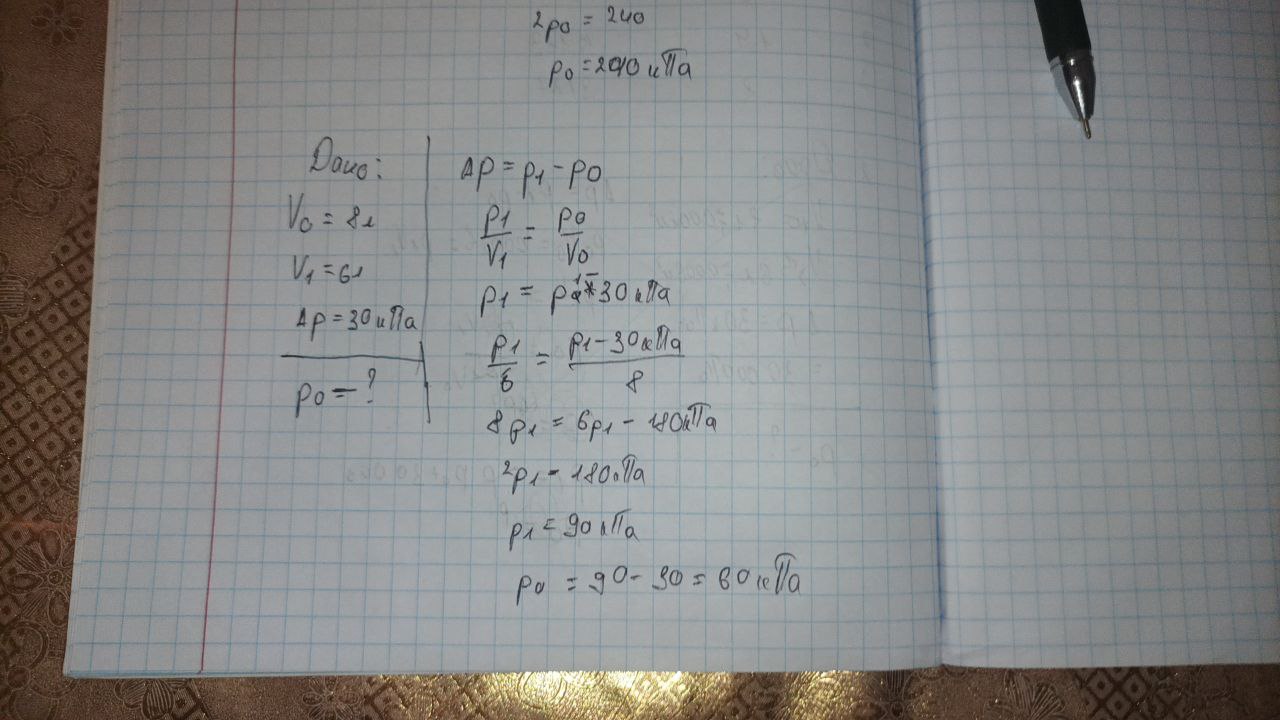 2p0 = 240
p0 = 240 кПа
Дано:
V0 = 8л
V1 = 6л
Δp = 30 кПа
p0 = ?
Δp = p1 - p0
p1/V1 = p0/V0
p1 = 30 кПа
p1/6 = p1 - 30 кПа/8
8p1 = 6p1 - 180 кПа
2p1 - 180 кПа
p1 = 90 кПа
p0 = 90 - 30 = 60 кПа